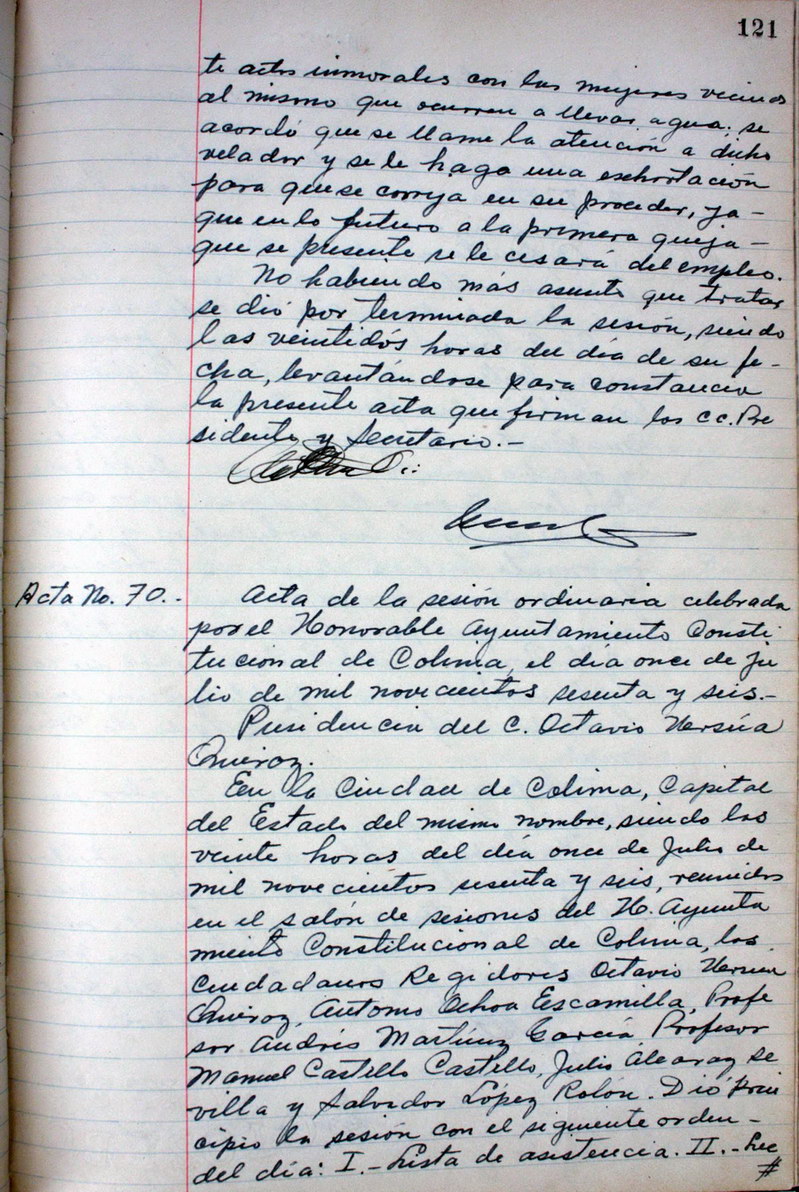 121
te actos inmorales con las mujeres vecinas
al mismo que ocurren a llevar agua; se
acordó que se llame la atención a dicho
velador y se le haga una exhortación
para que se corrija en su proceder, ya-
que en lo futuro a la primera queja-
que se presente se le cesará del empleo.
No habiendo más asunto que tratar
se dió por terminada la sesión, siendo
las veintidós horas del día de su fe-
cha, levantándose para constancia
la presente acta que firman los cc. Pre
sidente y Secretario.-
Acta No. 70.-
Acta de la sesión ordinaria celebrada
por el Honorable Ayuntamiento Consti
tucional de Colima, el día once de ju
lio de mil novecientos sesenta y seis.-
Presidencia del C. Octavio Ursúa
Quiroz.
En la Ciudad de Colima, Capital
del Estado del mismo nombre, siendo las
veinte horas del día once de Julio de
mil novecientos sesenta y seis, reunidos
en el salón de sesiones del H. Ayunta
miento Constitucional de Colima, los
ciudadanos Regidores Octavio Ursúa
Quiroz, Antonio Ochoa Escamilla, Profe
sor Andrés Martínez García, Profesor
Manuel Castello Castello, Julio Alcaraz Se
villa y Salvador López Rolón. Dió prin
cipio la sesión con el siguiente orden-
del día: I.- Lista de asistencia. II.- Lec
#